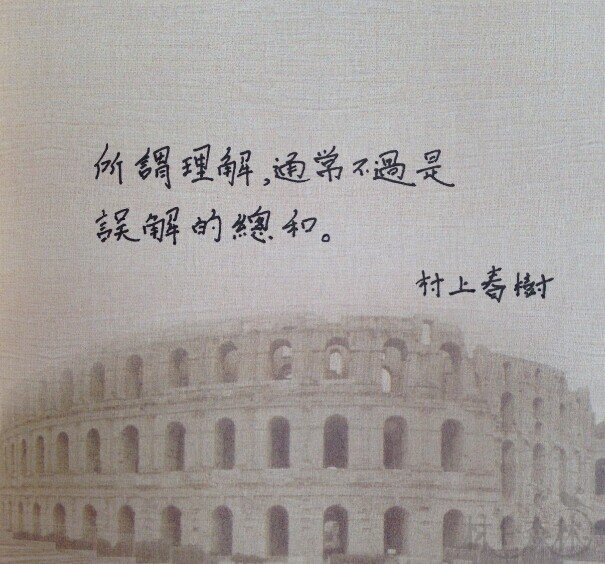 所謂理解,通常不過是
誤解的總和。
村上春樹